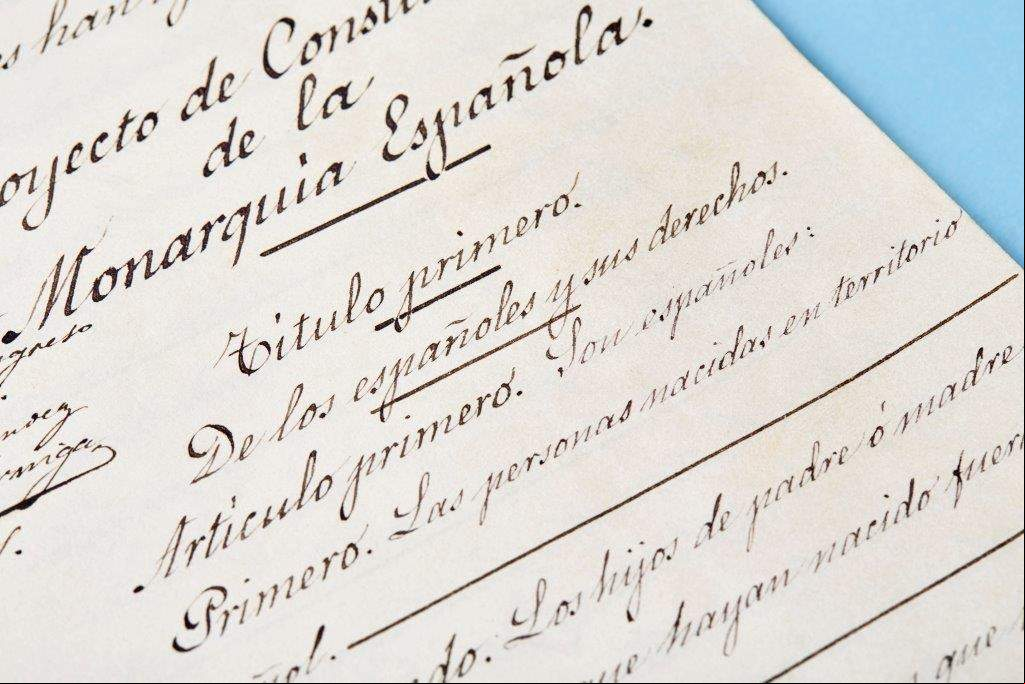 han
oyecto de Consti
de la
Monarquia Española.
Título primero.
De los españoles y sus derechos.
Artículo primero. Son españoles:
Primero. Las personas nacidas en territorio
ñol.
do. Los hijos de padre ó madre
que hayan nacido fuer
que